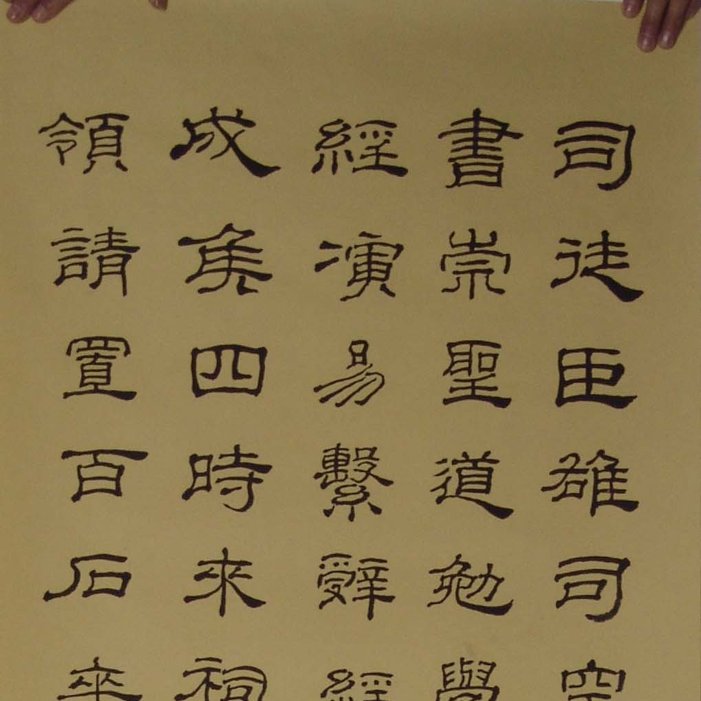 司徒臣雄司空
書崇聖道勉學
經演易繫辭經
成侯四時來祠
領請置百石卒